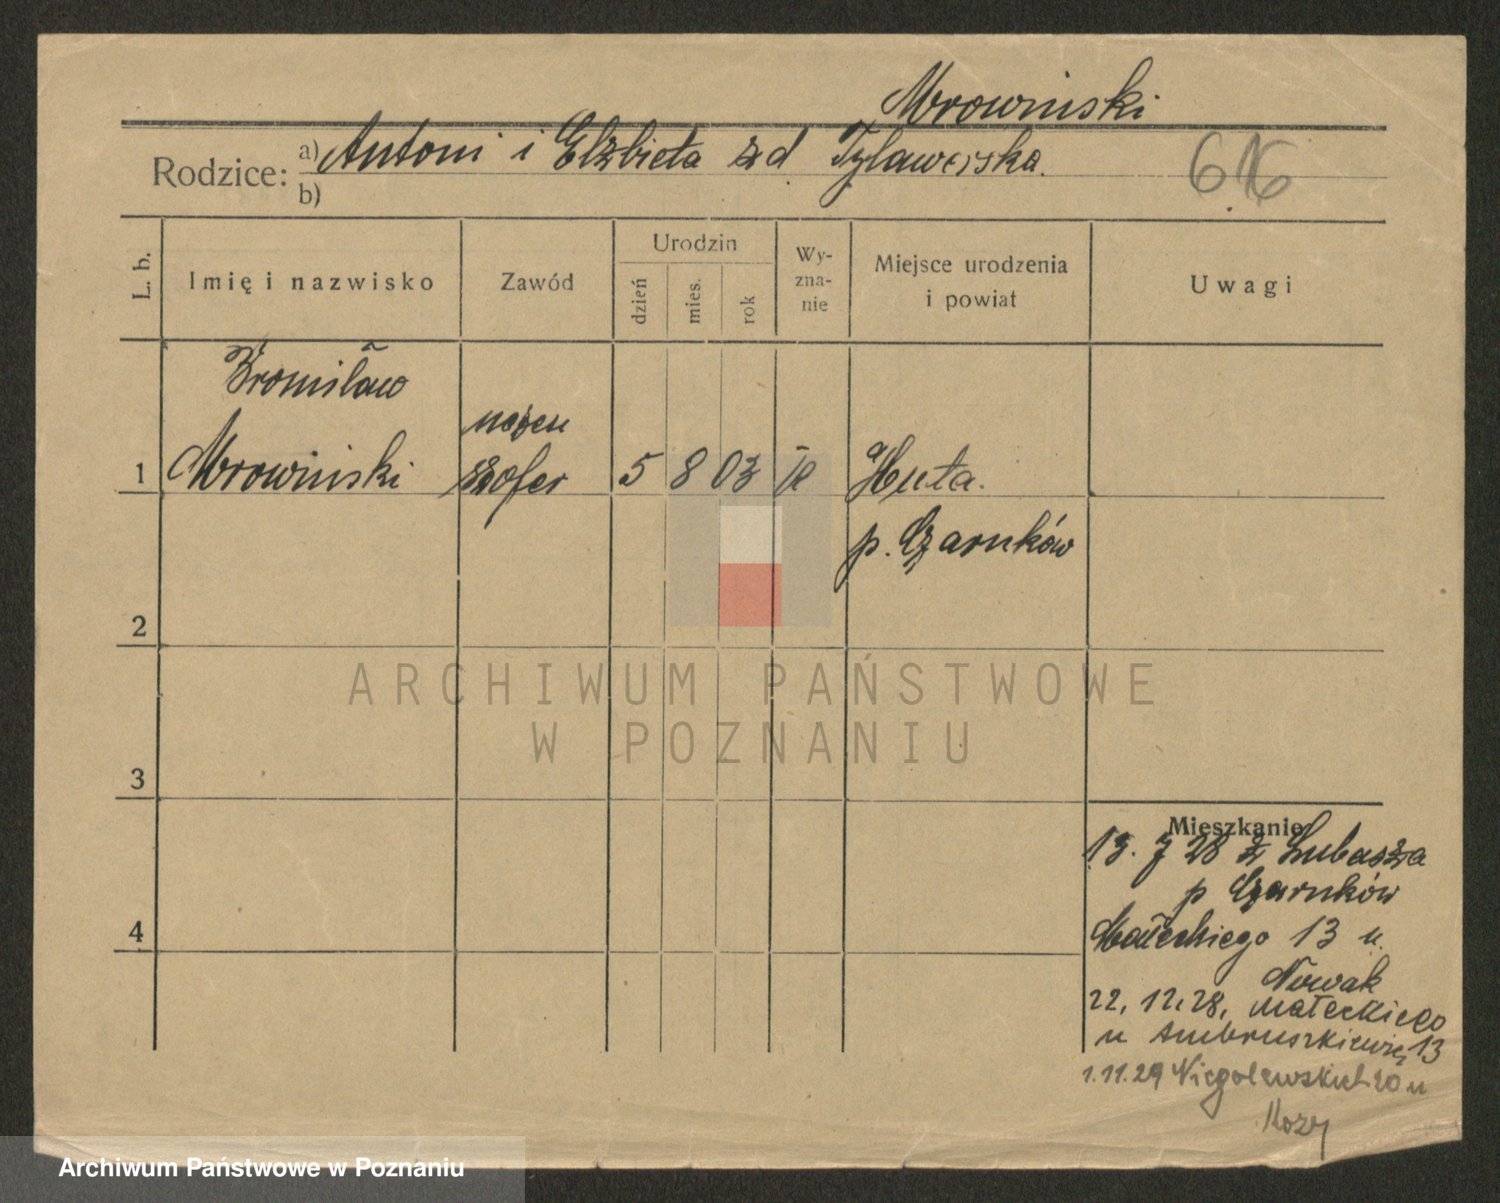 Mrowinski
Rodzice: a) Antoni i Elżbieta zd
b)
616
L. b.
Imię i nazwisko
Zawód
Urodzin
dzień
mies.
rok
Wy-
zna-
nie
Miejsce urodzenia
i powiat
Uwagi
Bronisław
1 Mrowinski
szofer
5 8 03
Huta.
p. Czarnków
2
3
4
ARCHIWUM PAŃSTWOWE
W POZNANIU
Mieszkanie
13. 7 28 z Lubasza
p Czarnków
Małeckiego 13 u.
Nowak
22. 12. 28. Małeckiego
u 13
1.11.29 Niegolewskich 20 u
Kozy
Archiwum Państwowe w Poznaniu